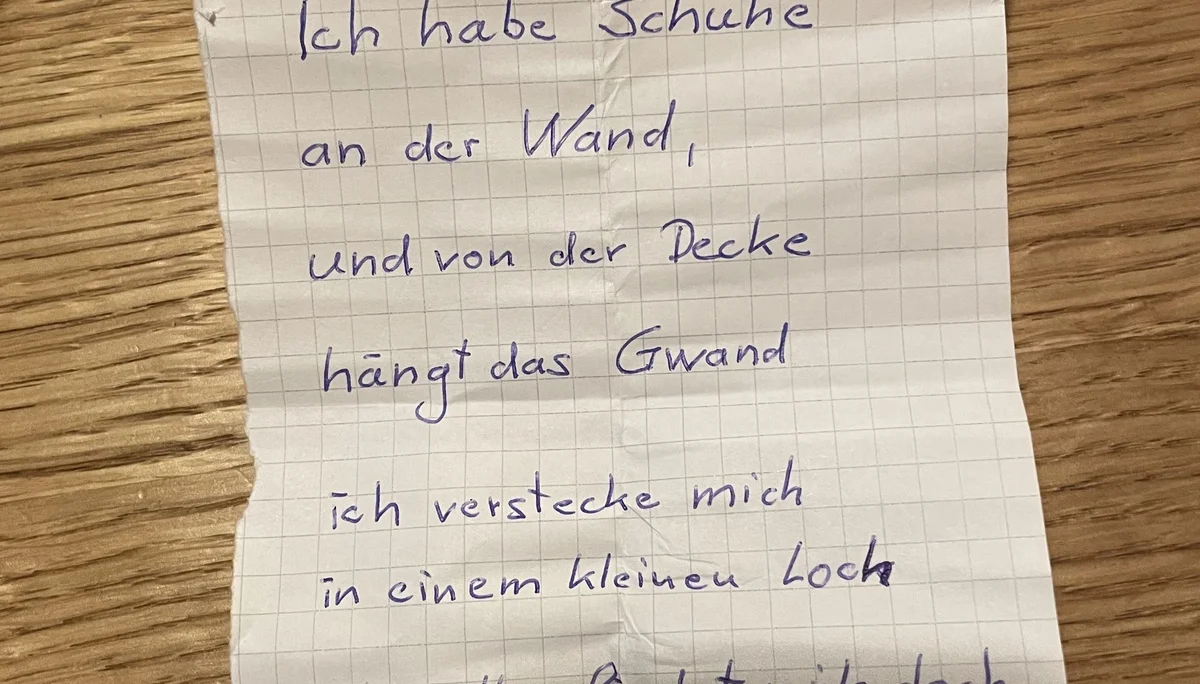 Ich habe Schuhe
an der Wand,
und von der Decke
hängt das Gwand
ich verstecke mich
in einem kleinen Loch